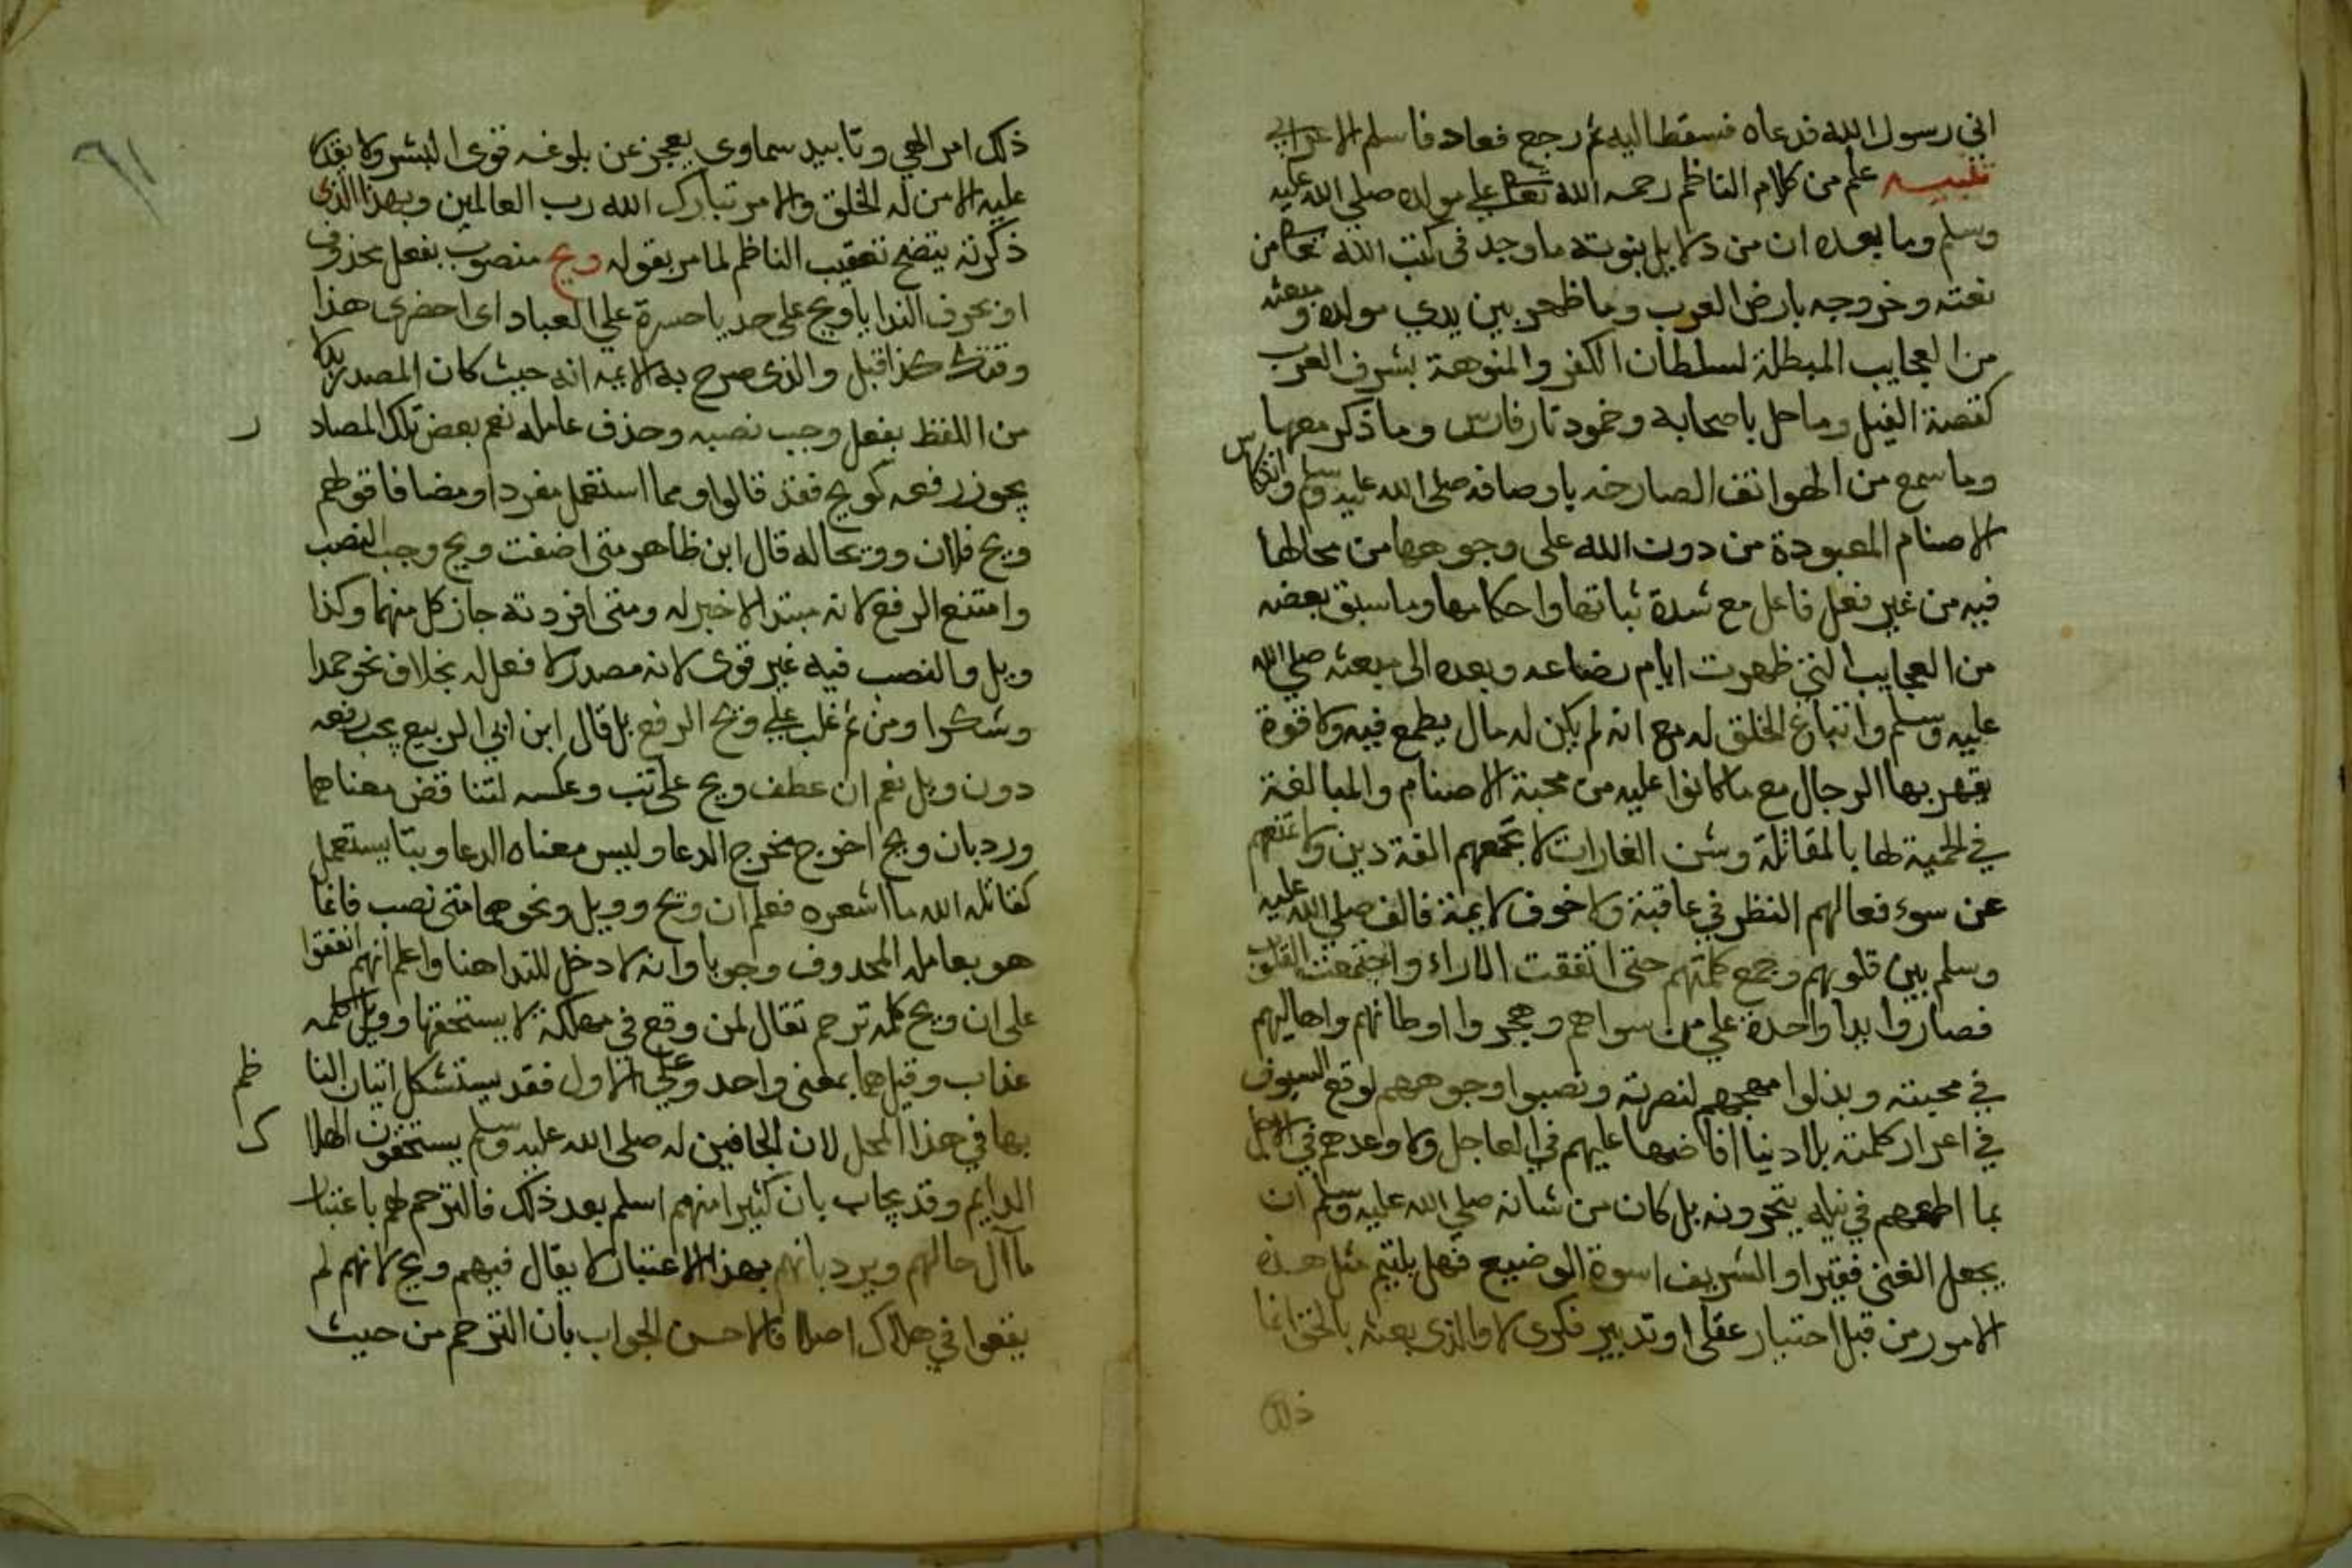 اني رسول الله فدعاه فسقط اليه ثم رجع فعاد فاسلم الاعرابي
تنبيه علم من كلام الناظم رحمه الله تعالى على مولده صلى الله عليه
وسلم وما بعده ان من دلايل نبوته ما وجد في كتب الله تعالى من
نعته وخروجه بارض العرب وما ظهر بين يدي مولده ومبعثه
من العجايب المبطلة لسلطان الكفر والمنوهة بشرف العرب
كقصة الفيل وما حل باصحابه وخمود نار فارس وما ذكر معها
وما سمع من الهواتف الصارخه باوصافه صلى الله عليه وسلم وانتكاس
الاصنام المعبودة من دون الله على وجوهها من محالها
فيه من غير فعل فاعل مع شدة ثباتها واحكامها وما سبق بعضه
من العجايب التي ظهرت ايام رضاعه وبعده الى مبعثه صلى الله
عليه وسلم واتباع الخلق له مع انه لم يكن له مال يطمع فيه ولا قوة
يقهر بها الرجال مع ما كانوا عليه من محبة الاصنام والمبالغة
في الحمية لها بالمقاتلة وشن الغارات لا تجمعهم الفة دين ولا تمنعهم
عن سوء فعالهم النظر في عاقبة ولا خوف لايمة فالف صلى الله عليه
وسلم بين قلوبهم وجمع كلمتهم حتى اتفقت الاراء واجتمعت القلوب
فصاروا يدا واحدة على من سواهم وهجروا اوطانهم واهاليهم
في محبته وبذلوا مهجهم لنصرته ونصبوا وجوههم لوقع السيوف
في اعزاز كلمته بلا دنيا افاضها عليهم في العاجل ولا وعدهم في الاجل
بما اطمعهم في نيله يتحرونه بل كان من شانه صلى الله عليه وسلم ان
يجعل الغني فقيرا والشريف اسوة الوضيع فهل يلتيم مثل هذه
الامور من قبل اختيار عقلى او تدبير فكرى لا والذى بعثه بالحق انما
ذلك
٦١
ذلك امر الهي وتاييد سماوي يعجز عن بلوغه قوى البشر ولا يقدر
عليه الا من له الخلق والامر تبارك الله رب العالمين وبهذا الذى
ذكرته يتضح تعقيب الناظم لما مر بقوله ويح منصوب بفعل محذوف
او بحرف الندا يا ويح على حد يا حسرة على العباد اى احضرى هذا
وقتك كذا قيل والذى صرح به الايمه انه حيث كان المصدر بدلا
من اللفظ بفعل وجب نصبه وحذف عامله نعم بعض تلك المصاد
ر
يجوز رفعه كويح فقد قالوا ومما استعمل مفردا ومضافا قولهم
ويح فلان وويحا له قال ابن ظاهر متى اضفت ويح وجب النصب
وامتنع الرفع لانه مبتدا لا خبر له ومتى افردته جاز كل منهما وكذا
ويل والنصب فيه غير قوى لانه مصدر لا فعل له بخلاف نحو حمدا
وشكرا ومن ثم غلب على ويح الرفع بل قال ابن ابي الربيع يجب رفعه
دون ويل نعم ان عطف ويح على تب وعكسه لتناقض معناهما
ورد بان ويح اخرج مخرج الدعا وليس معناه الدعا وبتا يستعمل
كقاتله الله ما اشعره فعلم ان ويح وويل ونحوهما متى نصب فانما
هو بعامله المحذوف وجوبا وانه لا دخل للندا هنا واعلم انهم اتفقوا
على ان ويح كلمه ترحم تقال لمن وقع في مهلكة لا يستحقها وويل كلمه
عذاب وقيل هما بمعنى واحد وعلى الاول فقد يستشكل اتيان النا
ظم
بها في هذا المحل لان الجافين له صلى الله عليه وسلم يستحقون الهلا
ك
الدايم وقد يجاب بان كثيرا منهم اسلم بعد ذلك فالترحم لهم باعتبار
مآل حالهم ويرد بانهم بهذا الاعتبار لا يقال فيهم ويح لانهم لم
يقعوا في هلاك اصلا فالاحسن الجواب بان الترحم من حيث